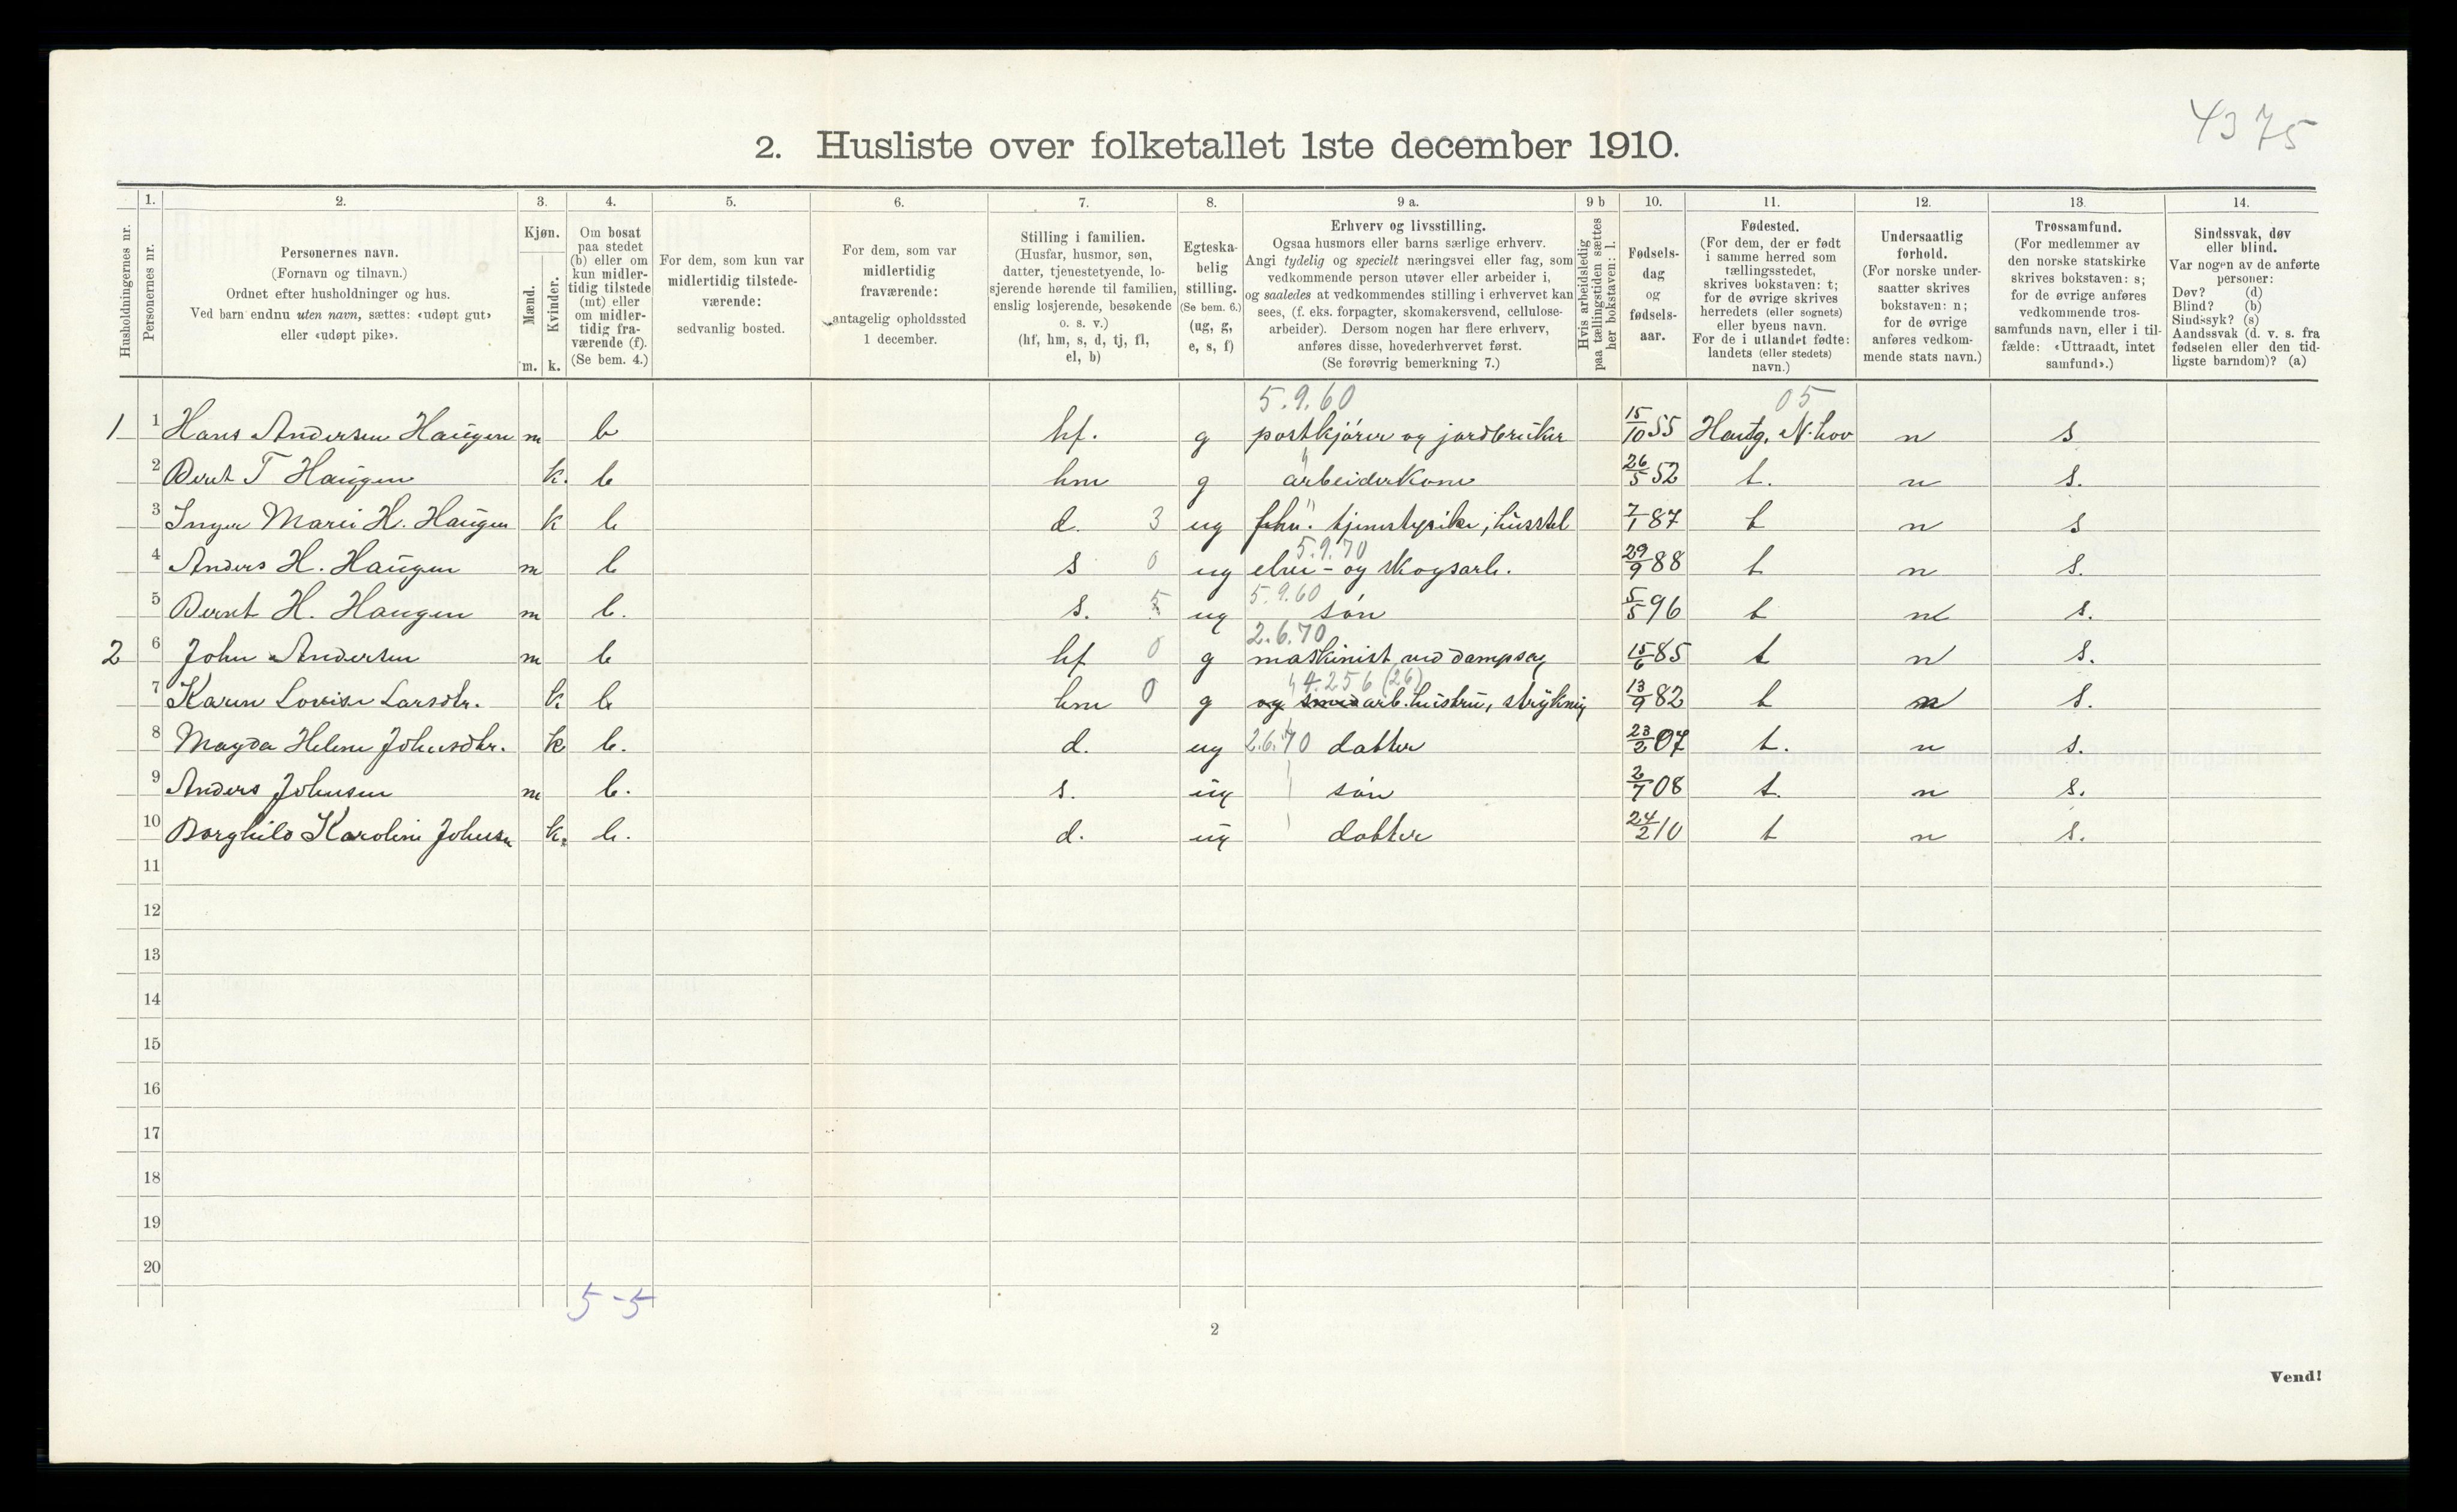 4375
2. Husliste over folketallet 1ste december 1910.
Husholdningernes nr.
1.
Personernes nr.
2.
Personernes navn.
(Fornavn og tilnavn.)
Ordnet efter husholdninger og hus.
Ved barn endnu uten navn, sættes: «udøpt gut»
eller «udøpt pike».
3.
Kjøn.
Mænd.
Kvinder.
m. k.
4.
Om bosat
paa stedet
(b) eller om
kun midler-
tidig tilstede
(mt) eller
om midler-
tidig fra-
værende (f).
(Se bem. 4.)
5.
For dem, som kun var
midlertidig tilstede-
værende:
sedvanlig bosted.
6.
For dem, som var
midlertidig
fraværende:
antagelig opholdssted
1 december.
7.
Stilling i familien.
(Husfar, husmor, søn,
datter, tjenestetyende, lo-
sjerende hørende til familien,
enslig losjerende, besøkende
o. s. v.)
(hf, hm, s, d, tj, fl,
el, b)
8.
Egteska-
belig
stilling.
(Se bem. 6.)
(ug, g,
e, s, f)
9 a.
Erhverv og livsstilling.
Ogsaa husmors eller barns særlige erhverv.
Angi tydelig og specielt næringsvei eller fag, som
vedkommende person utøver eller arbeider i,
og saaledes at vedkommendes stilling i erhvervet kan
sees, (f. eks. forpagter, skomakersvend, cellulose-
arbeider). Dersom nogen har flere erhverv,
anføres disse, hovederhvervet først.
(Se forøvrig bemerkning 7.)
9 b
Hvis arbeidsledig
paa tællingstiden sættes
her bokstaven: l.
10.
Fødsels-
dag
og
fødsels-
aar.
11.
Fødested.
(For dem, der er født
i samme herred som
tællingsstedet,
skrives bokstaven: t;
for de øvrige skrives
herredets (eller sognets)
eller byens navn.
For de i utlandet fødte:
landets (eller stedets)
navn.)
12.
Undersaatlig
forhold.
(For norske under-
saatter skrives
bokstaven: n;
for de øvrige
anføres vedkom-
mende stats navn.)
13.
Trossamfund.
(For medlemmer av
den norske statskirke
skrives bokstaven: s;
for de øvrige anføres
vedkommende tros-
samfunds navn, eller i til-
fælde: «Uttraadt, intet
samfund».)
14.
Sindssvak, døv
eller blind.
Var nogen av de anførte
personer:
Døv? (d)
Blind? (b)
Sindssyk? (s)
Aandssvak (d. v. s. fra
fødselen eller den tid-
ligste barndom)? (a)
5.9.60 05
1 1 Hans Andersen Haugen m b hf. g postkjörer og jordbruker 15/10 55 N. hov n s
2 Berit T Haugen k. b hm g arbeiderkone 26/5 52 t. n s.
3 Inger Marie H. Haugen k b d. 3 ug tjenestepike, husstel 7/1 87 t n s
5.9.70
4 Anders H. Haugen m b s 0 ug elve- og skogsarb. 29/9 88 t n s.
5.9.60
5 Bernt H. Haugen m b. s. 5 ug sön 5/5 96 t n s.
2.6.70
2 6 John Andersen m b hf 0 g maskinist ved dampsag 15/6 85 t n s.
4.256 (26)
7 Karen Lovise Larsdtr. k b hm 0 g og smed arb. hustru, strykning 13/9 82 t n s.
8 Magda Helene Johnsdtr. k b. d. ug 2.6.70 datter 23/2 07 t. n s.
9 Anders Johnsen m b. s. ug sön 2/7 08 t. n s.
10 Borghild Karoline Johnsen k. b. d. ug datter 24/2 10 t n s.
11
12
13
14
15
16
17
18
19
20
5-5
2
Vend!